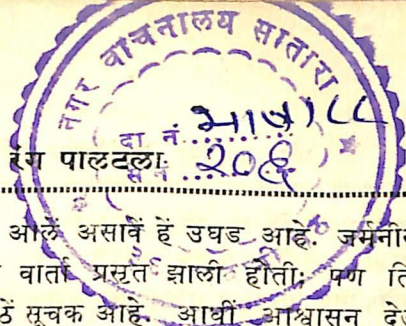 नगर वाचनालय सातारा
दा नं. भाषा।८८
रंग पालटला २०६
आलें असावें हें उघड आहे. जर्मनी
वार्ता प्रसृत झाली होती; पण ति
ठें सूचक आहे. आधीं आश्वासन दे